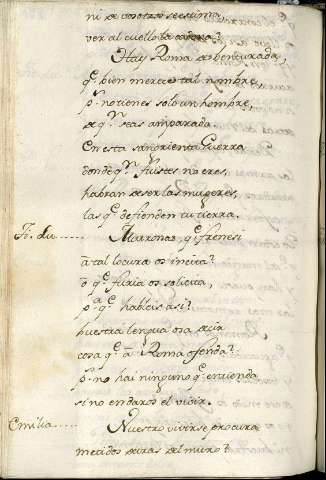 ni de vosotras se estima,
ver al cuello la cadena?
Hay Roma desbenturada,
q.e bien merece tal nombre,
p.s no tienes solo un hombre,
de q.n seas amparada.
En esta sangrienta Guerra
donde q.n fuistes no eres,
habran de ser las mugeres,
las q.e defienden tu tierra.
Matronas, q.e frenesi
â tal locura os incita?
ô q.e furia os solicita,
p.a q.e hableis asi?
vuestra lengua osa decir
cosa q.e â Roma ofenda?
p.s no hai ninguno q.e entienda
si no en daros el vivir.
Emilia.....
Nuestro vivir se procura
metidos detras del muro?